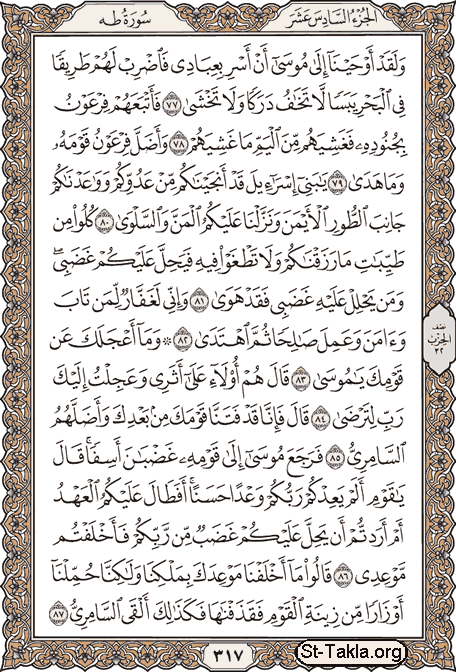 سُورَةُ طه
الجُزْءُ السَّادِسَ عَشَرَ
وَلَقَدْ أَوْحَيْنَآ إِلَىٰ مُوسَىٰٓ أَنْ أَسْرِ بِعِبَادِى فَٱضْرِبْ لَهُمْ طَرِيقًا
فِى ٱلْبَحْرِ يَبَسًا لَّا تَخَٰفُ دَرَكًا وَلَا تَخْشَىٰ ٧٧ فَأَتْبَعَهُمْ فِرْعَوْنُ
بِجُنُودِهِۦ فَغَشِيَهُم مِّنَ ٱلْيَمِّ مَا غَشِيَهُمْ ٧٨ وَأَضَلَّ فِرْعَوْنُ قَوْمَهُۥ
وَمَا هَدَىٰ ٧٩ يَٰبَنِىٓ إِسْرَٰٓءِيلَ قَدْ أَنجَيْنَٰكُم مِّنْ عَدُوِّكُمْ وَوَٰعَدْنَٰكُمْ
جَانِبَ ٱلطُّورِ ٱلْأَيْمَنَ وَنَزَّلْنَا عَلَيْكُمُ ٱلْمَنَّ وَٱلسَّلْوَىٰ ٨٠ كُلُوا۟ مِن
طَيِّبَٰتِ مَا رَزَقْنَٰكُمْ وَلَا تَطْغَوْا۟ فِيهِ فَيَحِلَّ عَلَيْكُمْ غَضَبِى ۖ
وَمَن يَحْلِلْ عَلَيْهِ غَضَبِى فَقَدْ هَوَىٰ ٨١ وَإِنِّى لَغَفَّارٌ لِّمَن تَابَ
وَءَامَنَ وَعَمِلَ صَٰلِحًا ثُمَّ ٱهْتَدَىٰ ٨٢ ۞ وَمَآ أَعْجَلَكَ عَن
قَوْمِكَ يَٰمُوسَىٰ ٨٣ قَالَ هُمْ أُو۟لَآءِ عَلَىٰٓ أَثَرِى وَعَجِلْتُ إِلَيْكَ
رَبِّ لِتَرْضَىٰ ٨٤ قَالَ فَإِنَّا قَدْ فَتَنَّا قَوْمَكَ مِنۢ بَعْدِكَ وَأَضَلَّهُمُ
ٱلسَّامِرِىُّ ٨٥ فَرَجَعَ مُوسَىٰٓ إِلَىٰ قَوْمِهِۦ غَضْبَٰنَ أَسِفًا ۚ قَالَ
يَٰقَوْمِ أَلَمْ يَعِدْكُمْ رَبُّكُمْ وَعْدًا حَسَنًا ۚ أَفَطَالَ عَلَيْكُمُ ٱلْعَهْدُ
أَمْ أَرَدتُّمْ أَن يَحِلَّ عَلَيْكُمْ غَضَبٌ مِّن رَّبِّكُمْ فَأَخْلَفْتُم
مَّوْعِدِى ٨٦ قَالُوا۟ مَآ أَخْلَفْنَا مَوْعِدَكَ بِمَلْكِنَا وَلَٰكِنَّا حُمِّلْنَآ
أَوْزَارًا مِّن زِينَةِ ٱلْقَوْمِ فَقَذَفْنَٰهَا فَكَذَٰلِكَ أَلْقَى ٱلسَّامِرِىُّ ٨٧
نصف
الحزب
٣٢
٣١٧
St-Takla.org